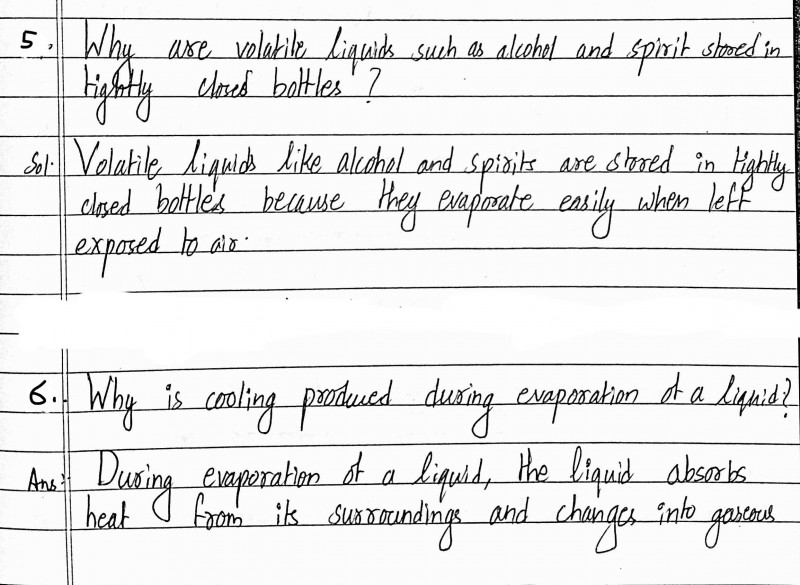 5. Why are volatile liquids such as alcohol and spirit stored in
tightly closed bottles ?
Sol. Volatile liquids like alcohol and spirits are stored in tightly
closed bottles because they evaporate easily when left
exposed to air.
6. Why is cooling produced during evaporation of a liquid?
Ans: During evaporation of a liquid, the liquid absorbs
heat from its surroundings and changes into gaseous